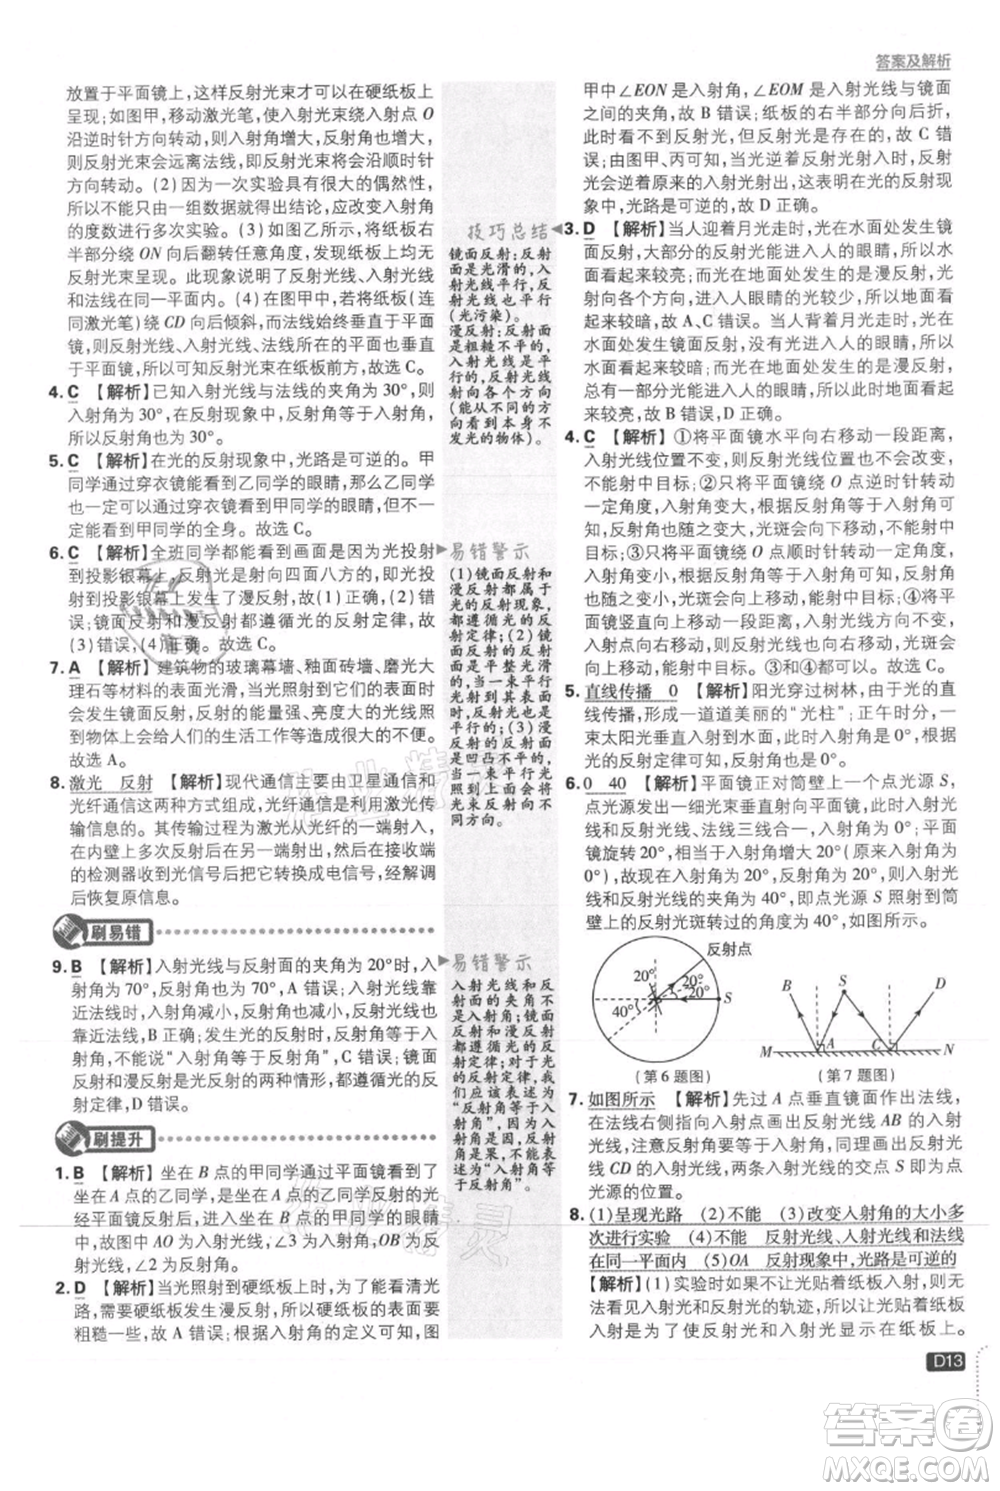 答案及解析
放置于平面镜上，这样反射光束才可以在硬纸板上
呈现；如图甲，移动激光笔，使入射光束绕入射点 O
沿逆时针方向转动，入射角增大，则反射角也增大，
反射光束会远离法线，即反射光束会沿顺时针
方向转动。(2)因为一次实验具有很大的偶然性，
所以不能仅凭一次实验就得出结论，应改变入射角
的度数进行多次实验。(3)如图乙所示，将纸板右
半部分绕 ON 向后翻转任意角度，发现纸板上均无
反射光束呈现，此现象说明了反射光线、入射光线
和法线在同一平面内。(4)在图甲中，若将纸板(连
同激光笔)绕 CD 向后倾斜，而法线始终垂直于平面
镜，反射光线、入射光线、法线在同一平面内，所以
反射光束在纸板前方，故选 C。
4. C 【解析】已知入射光线与法线的夹角为 30°，则
入射角为 30°，在反射现象中，反射角等于入射角，
所以反射角也为 30°。故选 C。
5. C 【解析】在光的反射现象中，光路是可逆的。甲
同学通过穿衣镜看到乙同学的眼睛，则乙同学也
可以通过穿衣镜看到甲同学的眼睛，但乙同学不
一定能看到甲同学的全身。故选 C。
6. C 【解析】全班同学都能看到画面是因为光投射
到投影银幕上，反射光是射向四面八方的，即光射
到投影银幕上发生了漫反射，故(1)正确，(2)错
误；镜面反射和漫反射都遵循光的反射定律，故
(3)错误，(4)正确。故选 C。
7. A 【解析】建筑物的玻璃幕墙、釉面砖墙、磨光大
理石等材料的表面光滑，当太阳照射到它们表面时
会发生镜面反射，反射的能量强、亮度大的光线照
到物体上会对人们的生活工作等方面造成影响。
故选 A。
8. 激光 反射 【解析】现代通信主要由卫星通信和
光纤通信这两种方式组成，光纤通信是以激光传
输信息的。其传输过程为激光从光纤的一端射入，
在内壁上多次反射后在另一端射出，然后在接收端
的检测器将光信号它把它转换成电信号，经处理
后恢复原信息。
刷易错
9. B 【解析】入射光线与反射面的夹角为 20°时，入
射角为 70°，反射角为 70°，A 错误；入射光线靠
近法线时，入射角减小，反射角也减小，反射光线也
靠近法线，B 正确；发生光的反射时，反射角等于入
射角，不能说“入射角等于反射角”，C 错误；镜面
反射和漫反射都是光的反射现象，都遵循光的反
射定律，D 错误。故选 B。
刷提升
1. B 【解析】坐在 B 点的甲同学通过平面镜看到了
坐在 A 点的乙同学，说明坐在 A 点的乙同学反射的光
经平面镜反射，进入坐在 B 点的甲同学的眼睛
中，图中 AO 为入射光线，∠1 是入射角，OB 为反
射光线，∠2 为反射角。故选 B。
2. D 【解析】当光照射到硬纸板上时，为了能看清光
路，需要硬纸板发生漫反射，所以硬纸板的表面要
粗糙一些，故 A 错误；根据入射角的定义可知，图
技巧总结
镜面反射：反射
面是光滑的，入
射光线平行，反
射光线也平行
(光污染)。
漫反射：反射面
是粗糙不平的，
入射光线是平
行的，反射光线
射向各个方向
(能从不同的方
向看到本身不
发光的物体)。
易错警示
(1)镜面反射和
漫反射都属于
光的反射现象，
都遵循光的反
射定律；(2)镜
面是平整光滑
的，光射到其表
面时，反射光线
射向同一方向；
易错警示
入射光线和反
射面的夹角不
是入射角；镜面
反射和漫反射
都遵循光的反
射定律；对于光
的反射定律，我
们应该表述为
“反射角等于入
射角”，不能表
述为“入射角等
于反射角”。
甲中∠EON 是入射角，∠EOM 是入射光线与镜面
之间的夹角，故 B 错误；纸板的右半部分向后折，
就看不到反射光，但反射光依然存在，故 C 错
误；由图甲、丙可知，当光逆着原来的反射光入
射时，反射光会逆着原来的入射光射出，说明在光的反射现
象中，光路是可逆的，故 D 正确。
3. D 【解析】当人迎着月光走时，光在水面处发生镜面
反射，大部分反射光进入人的眼睛，所以水面
看起来较亮；而光在地面处发生的是漫反射，进入人眼睛的光较少，所以地面看
起来较暗，故 A、C 错误。当人背着月光走时，光在
水面处发生镜面反射，几乎没有光进入人的眼睛，
水面看起来较暗；而光在地面处发生的是漫反射，
总有一部分光能进入人的眼睛，所以地面看起来
较亮，故 B 错误，D 正确。
4. C 【解析】①将平面镜水平向右移动一段距离，
入射光线位置不变，入射角不变，反射光线位置不
变，光斑位置不变；②只将平面镜绕 O 点逆时针转动
一定角度，入射角变大，根据反射角等于入射角可
知，反射角也变大，光斑向上移动，能射中目
标；③只将平面镜绕 O 点顺时针转动一定角度，入
射角变小，根据反射角等于入射角可知，反射角
也变小，光斑会向下移动，不能射中目标；④将平
面镜竖直向上移动一段距离，入射角不变，
入射点向右移动，反射角不变，光斑会
向上移动，能射中目标。故选 C。
5. 直线传播 0 【解析】阳光穿过树林，由于光的直
线传播，形成一道道美丽的“光柱”；正午时分，一
束太阳光垂直入射到水面，入射角是 0°，根据反射
角等于入射角可知，反射角也是 0°。
6. 0 40 【解析】平面镜正对筒壁上一个点光源 S，
点光源发出的一细光束垂直射向平面镜，入射光线
和反射光线、法线三线合一，入射角为 0°；平面
镜旋转 20°，相当于入射角增大 20°(原来入射角为
0°)，则反射光线与入射光线的夹角为 20°+20°=40°，
反射光线与入射光线的夹角为 40°，即点光源 S 照射到筒
壁上的反射光斑转过的角度为 40°，如图所示。
反射点
20°
20°
S
40°
(第 6 题图)
B S D
M A C N
(第 7 题图)
7. 如图所示 【解析】先过 A 点垂直镜面作出法线，
在法线右侧指向入射点画出入射光线 AB 的入射
光线，注意反射角要等于入射角，同理画出反射光
线 CD 的入射光线，两条入射光线的交点 S 即为点
光源的位置。
8. (1)呈现光路 (2)不能 (3)改变入射角的大小多
次进行实验 (4)不能 反射光线、入射光线和法线
在同一平面内 (5)OA 反射现象中，光路是可逆的
【解析】(1)实验时如果不让光贴着纸板入射，则无
法看见入射光和反射光的轨迹，所以让光贴着纸板
入射是为了使反射光和入射光显示在纸板上。
D13
答案圈
MXQE.COM